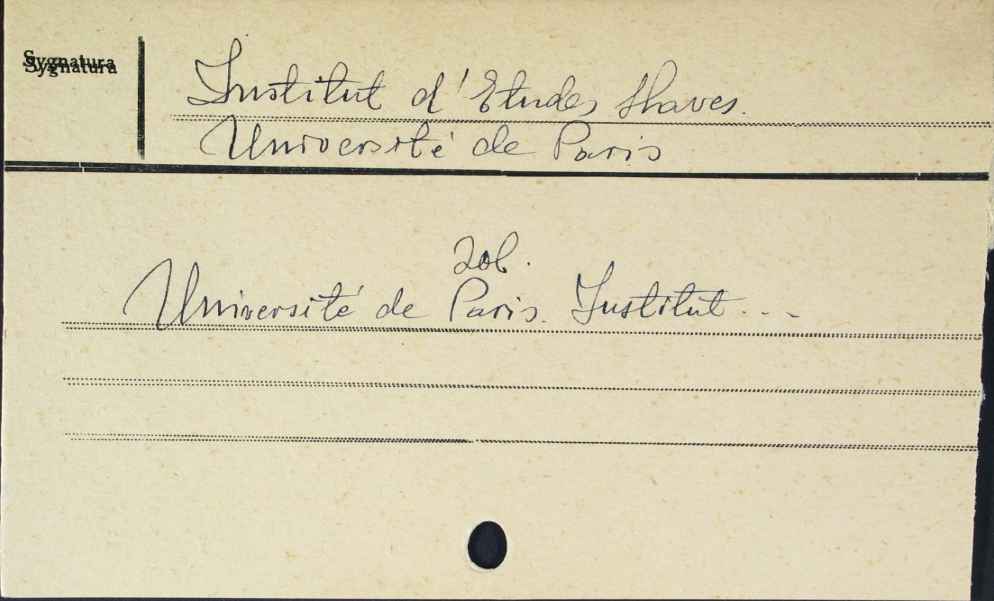 Sygnatura
Institut d'Etudes slaves.
Université de Paris
zob.
Université de Paris. Institut...